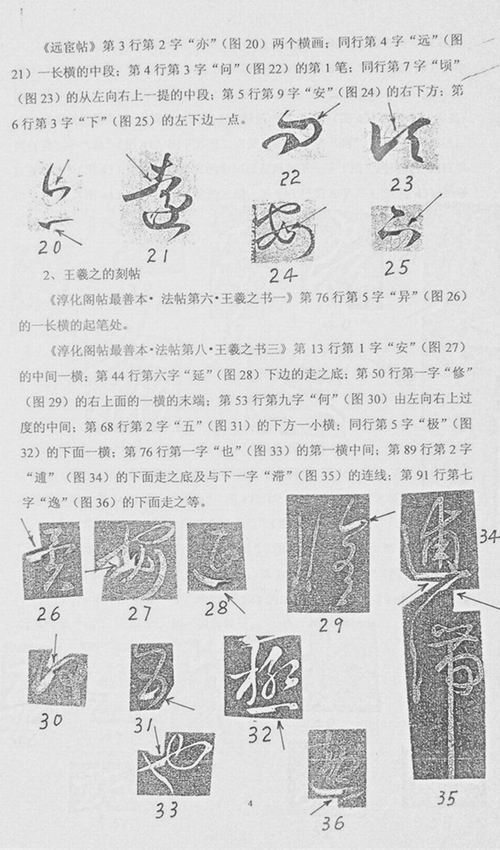 《远宦帖》第 3 行第 2 字“亦”（图 20）两个横画；同行第 4 字“远”（图
21）一长横的中段；第 4 行第 3 字“问”（图 22）的第 1 笔；同行第 7 字“顷”
（图 23）的从左向右上一提的中段；第 5 行第 9 字“安”（图 24）的右下方；第
6 行第 3 字“下”（图 25）的左下边一点。
22
23
20
21
24
25
2、王羲之的刻帖
《淳化阁帖最善本· 法帖第六·王羲之书一》第 76 行第 5 字“异”（图 26）
的一长横的起笔处。
《淳化阁帖最善本·法帖第八·王羲之书三》第 13 行第 1 字“安”（图 27）
的中间一横；第 44 行第六字“延”（图 28）下边的走之底；第 50 行第一字“修”
（图 29）的右上面的一横的末端；第 53 行第九字“何”（图 30）由左向右上过
度的中间；第 68 行第 2 字“五”（图 31）的下方一小横；同行第 5 字“极”（图
32）的下面一横；第 76 行第一字“也”（图 33）的第一横中间；第 89 行第 2 字
“逋”（图 34）的下面走之底及与下一字“滞”（图 35）的连线；第 91 行第七
字“逸”（图 36）的下面走之等。
34
26
27
28
29
30
31
32
33
4
36
35